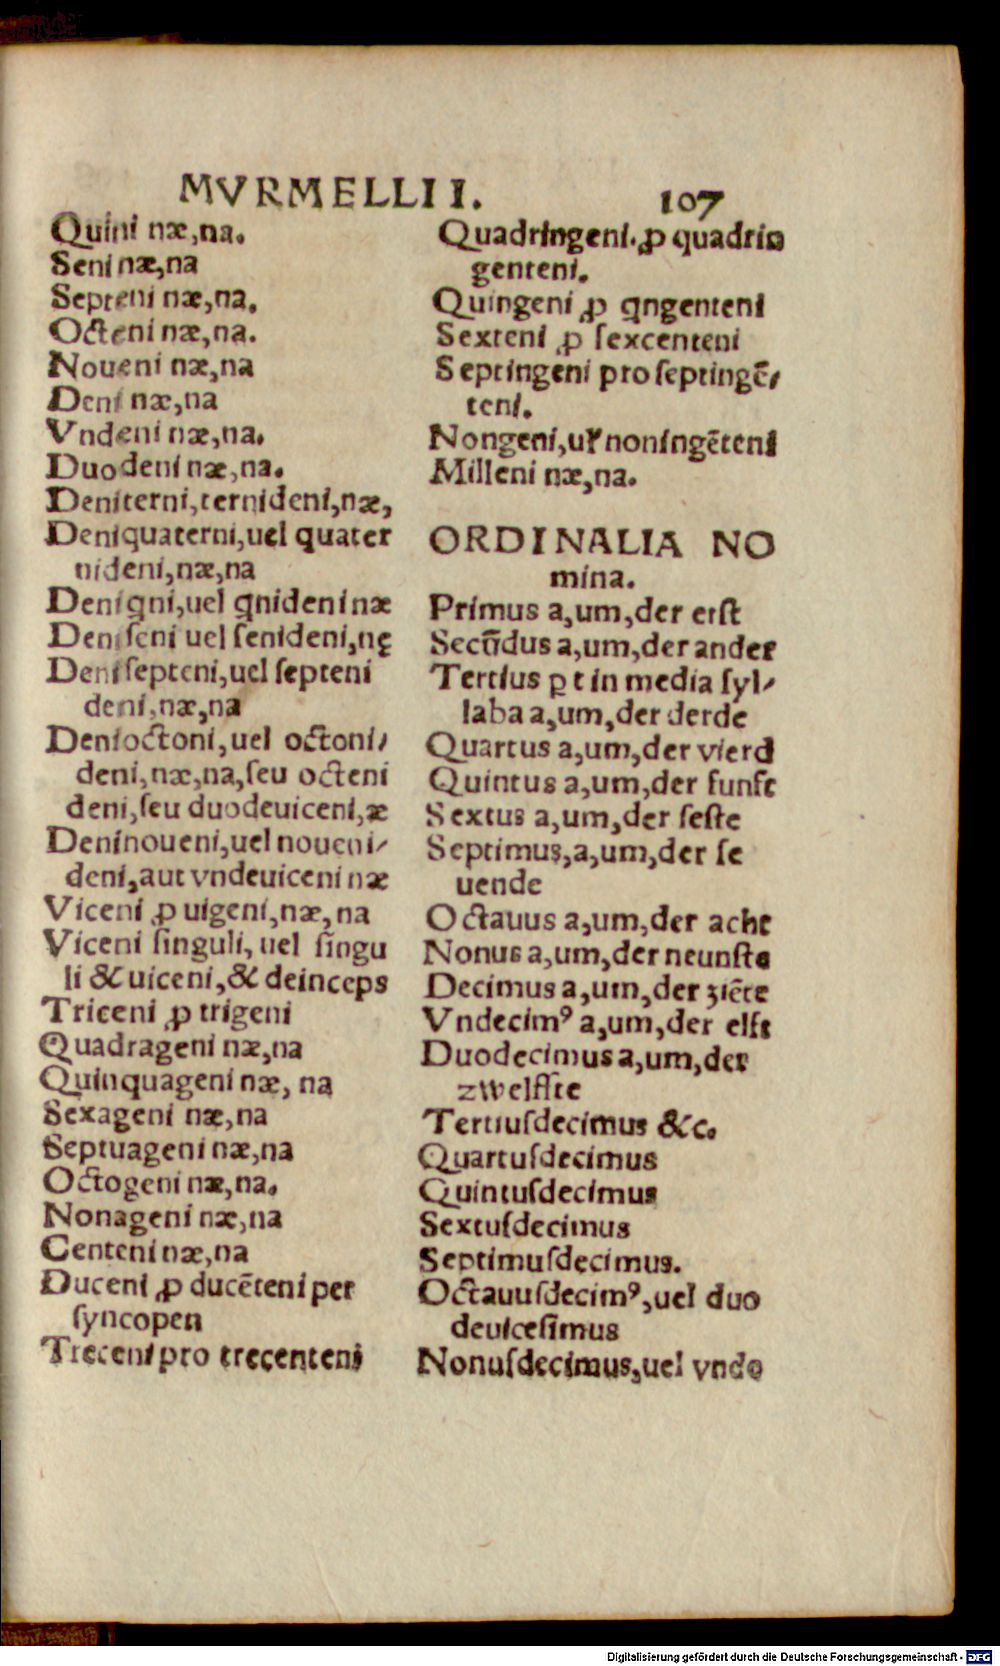 MVRMELLII. 107
Quini næ,na.
Seni næ,na
Septeni næ,na.
Octeni næ,na.
Noueni næ,na
Deni næ,na
Vndeni næ,na.
Duodeni næ,na.
Deniterni,ternideni,næ,
Deniquaterni,uel quater
nideni,næ,na
Deniqni,uel qnideni næ
Deniſeni uel ſenideni,nę
Deniſepteni,uel ſepteni
deni,næ,na
Denioctoni,uel octoni/
deni,næ,na,ſeu octeni
deni,ſeu duodeuiceni,æ
Deninoueni,uel noueni/
deni,aut vndeuiceni næ
Viceni ꝓ uigeni,næ,na
Viceni ſinguli, uel ſingu
li & uiceni,& deinceps
Triceni ꝓ trigeni
Quadrageni næ,na
Quinquageni næ, na
Sexageni næ,na
Septuageni næ,na
Octogeni næ,na.
Nonageni næ,na
Centeni næ,na
Duceni ꝓ ducēteni per
ſyncopen
Treceni pro trecenteni
Quadringeni.ꝓ quadrin
genteni.
Quingeni ꝓ qngenteni
Sexteni ꝓ ſexcenteni
Septingeni pro ſeptingē/
teni.
Nongeni,uꝉ noningēteni
Milleni næ,na.
ORDINALIA NO
mina.
Primus a,um,der erſt
Secūdus a,um,der ander
Tertius ꝑ t in media ſyl/
laba a,um,der derde
Quartus a,um,der vierd
Quintus a,um,der funft
Sextus a,um,der ſeſte
Septimus,a,um,der ſe
uende
Octauus a,um,der acht
Nonus a,um,der neunſte
Decimus a,um,der ziēte
Vndecimꝰ a,um,der elft
Duodecimus a,um,der
zwelffte
Tertiuſdecimus &c.
Quartuſdecimus
Quintuſdecimus
Sextuſdecimus
Septimuſdecimus.
Octauuſdecimꝰ,uel duo
deuiceſimus
Nonuſdecimus,uel vnde
Digitalisierung gefördert durch die Deutsche Forschungsgemeinschaft - DFG